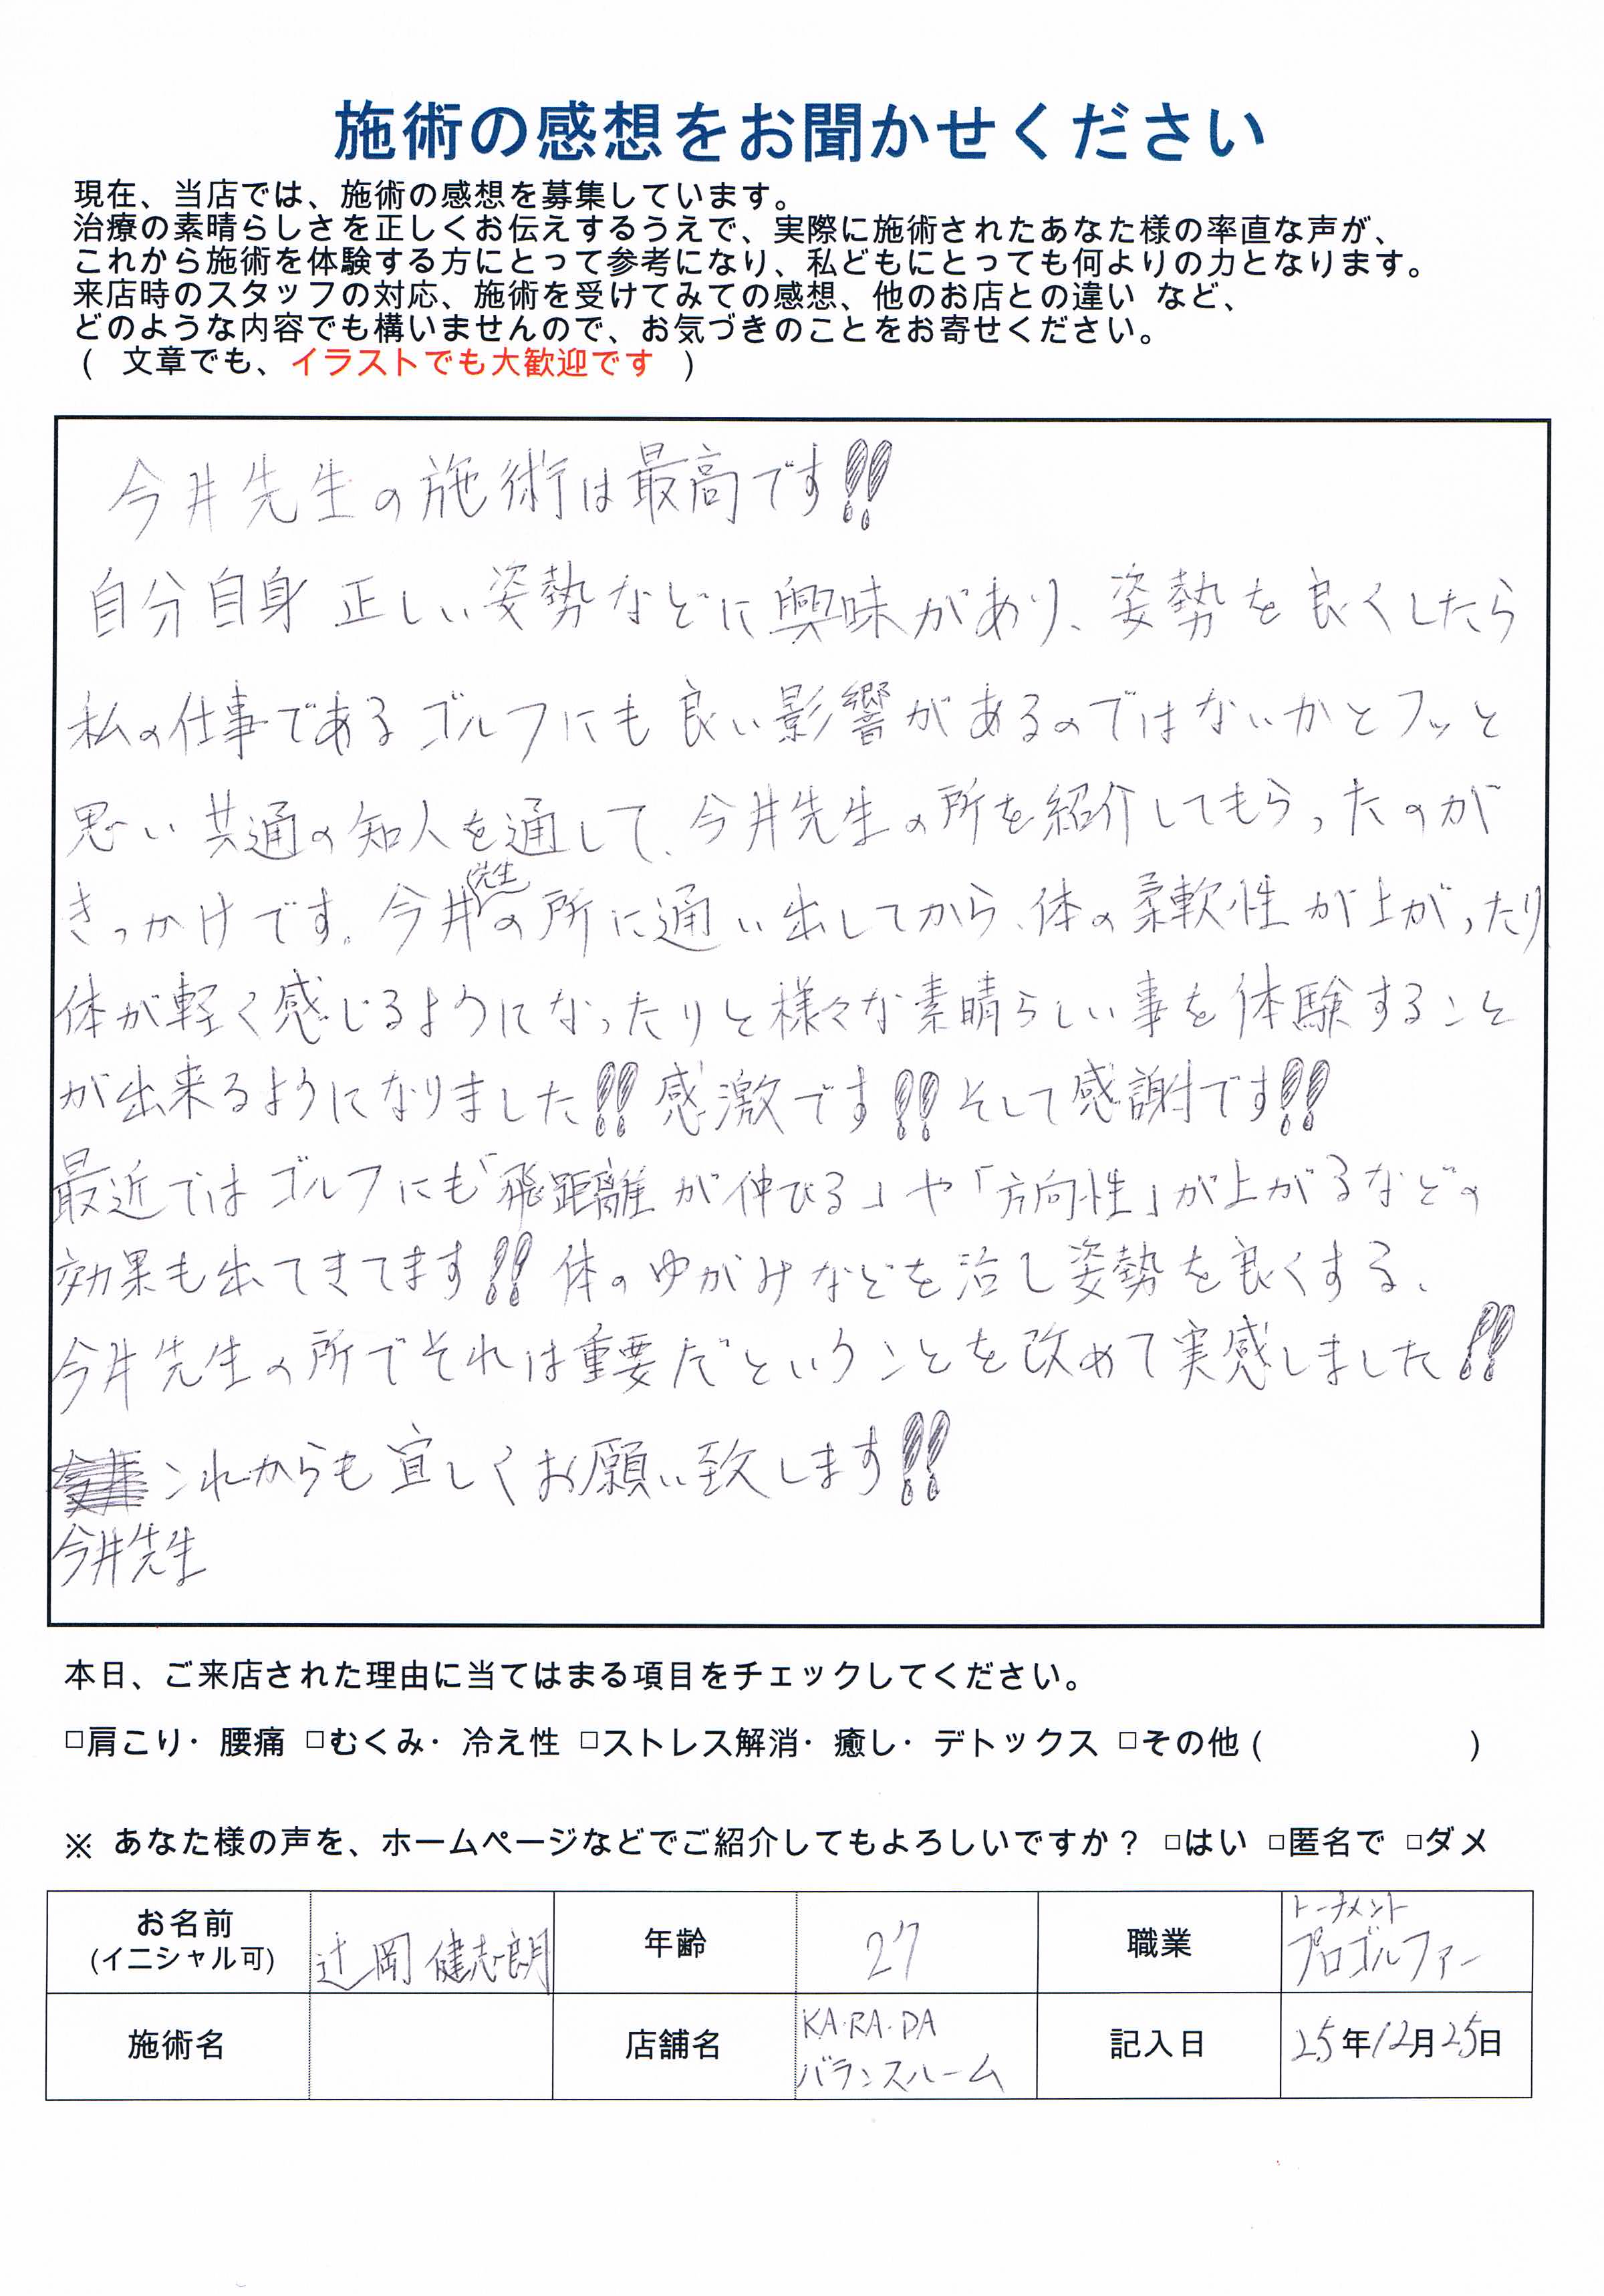 施術の感想をお聞かせください
現在、当店では、施術の感想を募集しています。
治療の素晴らしさを正しくお伝えするうえで、実際に施術されたあなた様の率直な声が、
これから施術を体験する方にとって参考になり、私どもにとっても何よりの力となります。
来店時のスタッフの対応、施術を受けてみての感想、他のお店との違い など、
どのような内容でも構いませんので、お気づきのことをお寄せください。
( 文章でも、イラストでも大歓迎です )
今井先生の施術は最高です!!
自分自身 正しい姿勢などに興味があり、姿勢を良くしたら
私の仕事であるゴルフにも良い影響があるのではないかとフッと
思い共通の知人を通して、今井先生の所を紹介してもらったのが
きっかけです。今井先生の所に通い出してから、体の柔軟性が上がったり
体が軽く感じるようになったりと様々な素晴らしい事を体験すること
が出来るようになりました!!感激です!!そして感謝です!!
最近ではゴルフにも「飛距離が伸びる」や「方向性」が上がるなどの
効果も出てきてます!!体のゆがみなどを治し姿勢を良くする、
今井先生の所でそれは重要だということを改めて実感しました!!
これからも宜しくお願い致します!!
今井先生
本日、ご来店された理由に当てはまる項目をチェックしてください。
□肩こり・腰痛 □むくみ・冷え性 □ストレス解消・癒し・デトックス □その他 ( )
※ あなた様の声を、ホームページなどでご紹介してもよろしいですか？ □はい □匿名で □ダメ
お名前 (イニシャル可) 辻岡 健志朗 年齢 27 職業 トーナメント プロゴルファー
施術名 店舗名 KA・RA・DA バランスルーム 記入日 25年12月25日